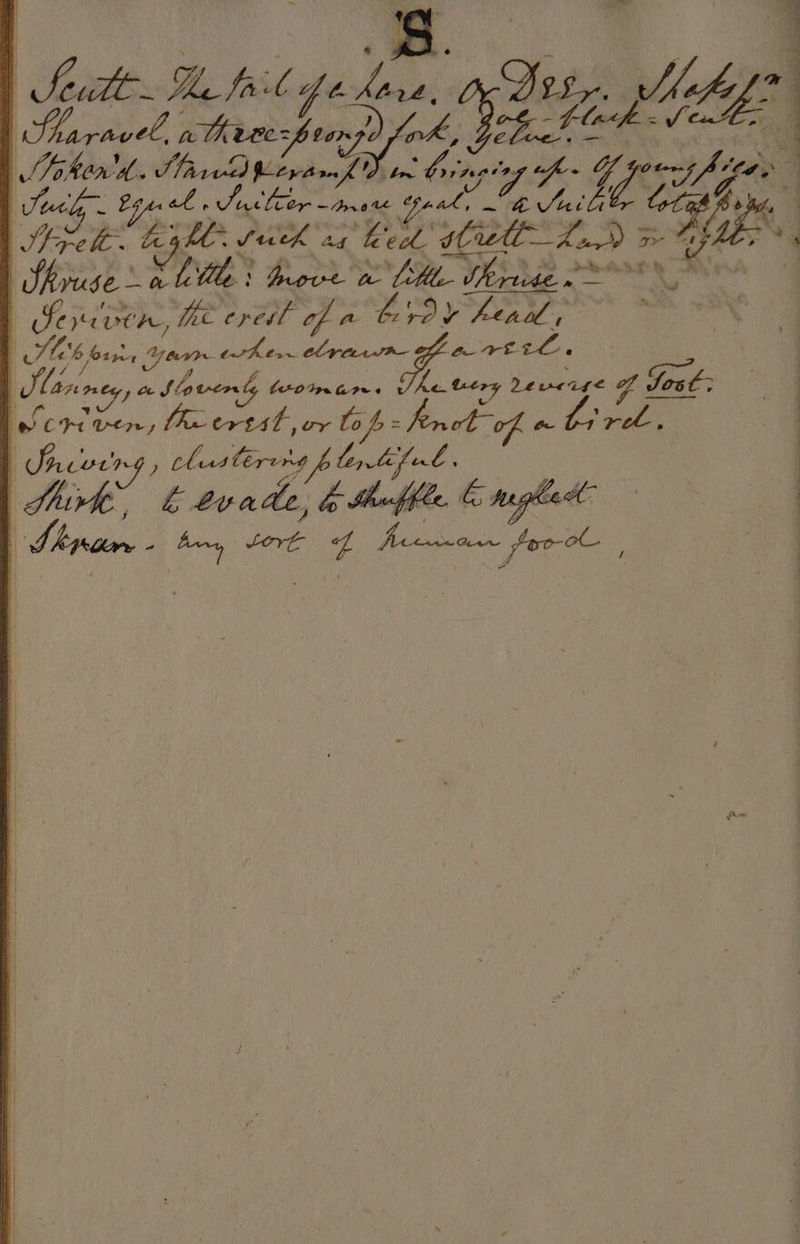 S.
Scutt - The tail of a hare, or Deer.
Sharavel, a three-prong'd fork,
in bringing up - Of young
Suity - Equal. Suitier - more equal, - a Suitier
Strett. tight. Such as tied strett
Shruse - a little: move a little Shruse. -
Scriven, the crest of a bird's head,
Slibbin, Yarn when drawn off a reel.
Slanney, a Slovenly woman. The very Reverse of Tost.
Scriven, the crest, or top-knot of a bird.
Sniving, clustering plentiful.
Shirk, to evade, to shuffle to neglect
any sort of human food